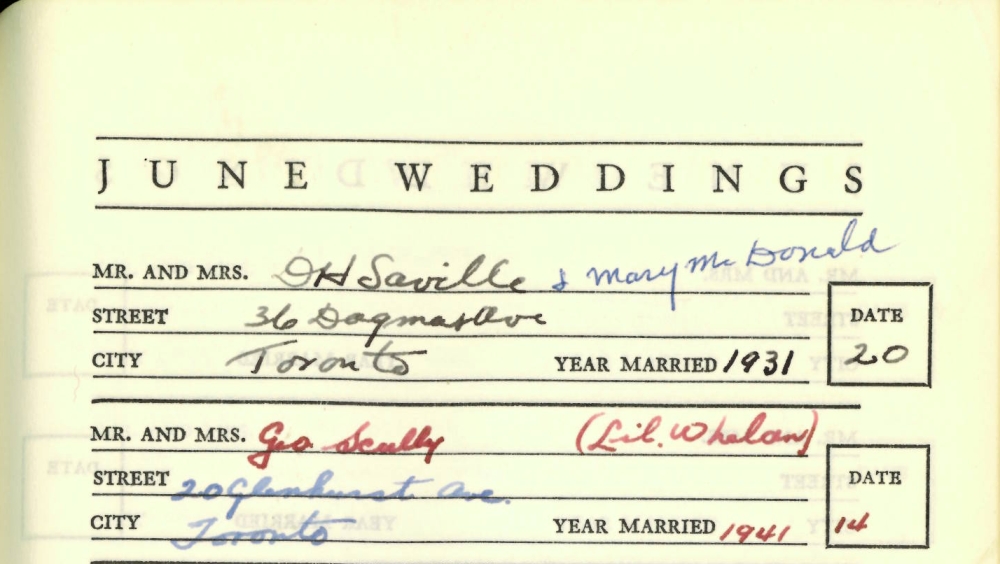 JUNE WEDDINGS
MR. AND MRS. DH Saville & Mary McDonald
STREET 36 Dagmar Ave
CITY Toronto YEAR MARRIED 1931 DATE 20
MR. AND MRS. Geo Scully (Lil. Whelan)
STREET 20 Glenhurst Ave.
CITY Toronto YEAR MARRIED 1941 DATE 14